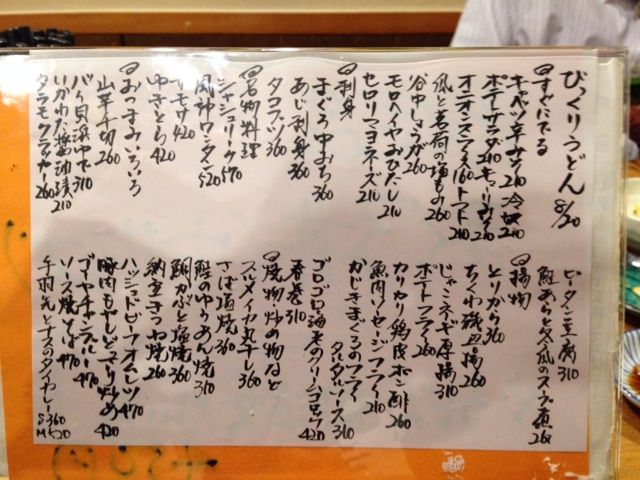 びっくりうどん 8/20
すぐにでる
キャベツ辛みそ 210 冷奴 210
ポテトサラダ 210 キューリみそ 210
オニオンスライス 160 トマト 210
瓜と茗荷の塩もみ 260
谷中しょうが 260
モロヘイヤおひたし 210
セロリマヨネーズ 210
刺身
まぐろ中おち 360
あじ刺身 360
タコブツ 360
名物料理
シャシュリーク 570
風神ワンタン 520
テモサ 420
ゆきとら 420
おつまみいろいろ
山芋千切 260
バイ貝浜ゆで 310
いかわた醤油漬 210
タラモクラッカー 260
ピータン豆腐 310
鮭あらと冬瓜のスープ煮 260
揚物
とりから 360
ちくわ磯辺揚 260
じゃこネギ厚揚 310
ポテトフライ 260
カリカリ鶏皮ポン酢 260
魚肉ソーセージフライ 210
かじきまぐろのフライ
タルタルソース 310
ゴロゴロ海老のクリームコロッケ 420
春巻 310
焼物炒め物など
スルメイカ丸干し 360
さば酒焼 360
鮭のゆうあん焼 310
鯛かぶと塩焼 360
納豆きつね焼 260
ハッシュドビーフオムレツ 470
豚肉もやしどっさり炒め 420
ゴーヤチャンプルー 470
ソース焼そば 470
手羽先とナスのタイカレー S360 M520